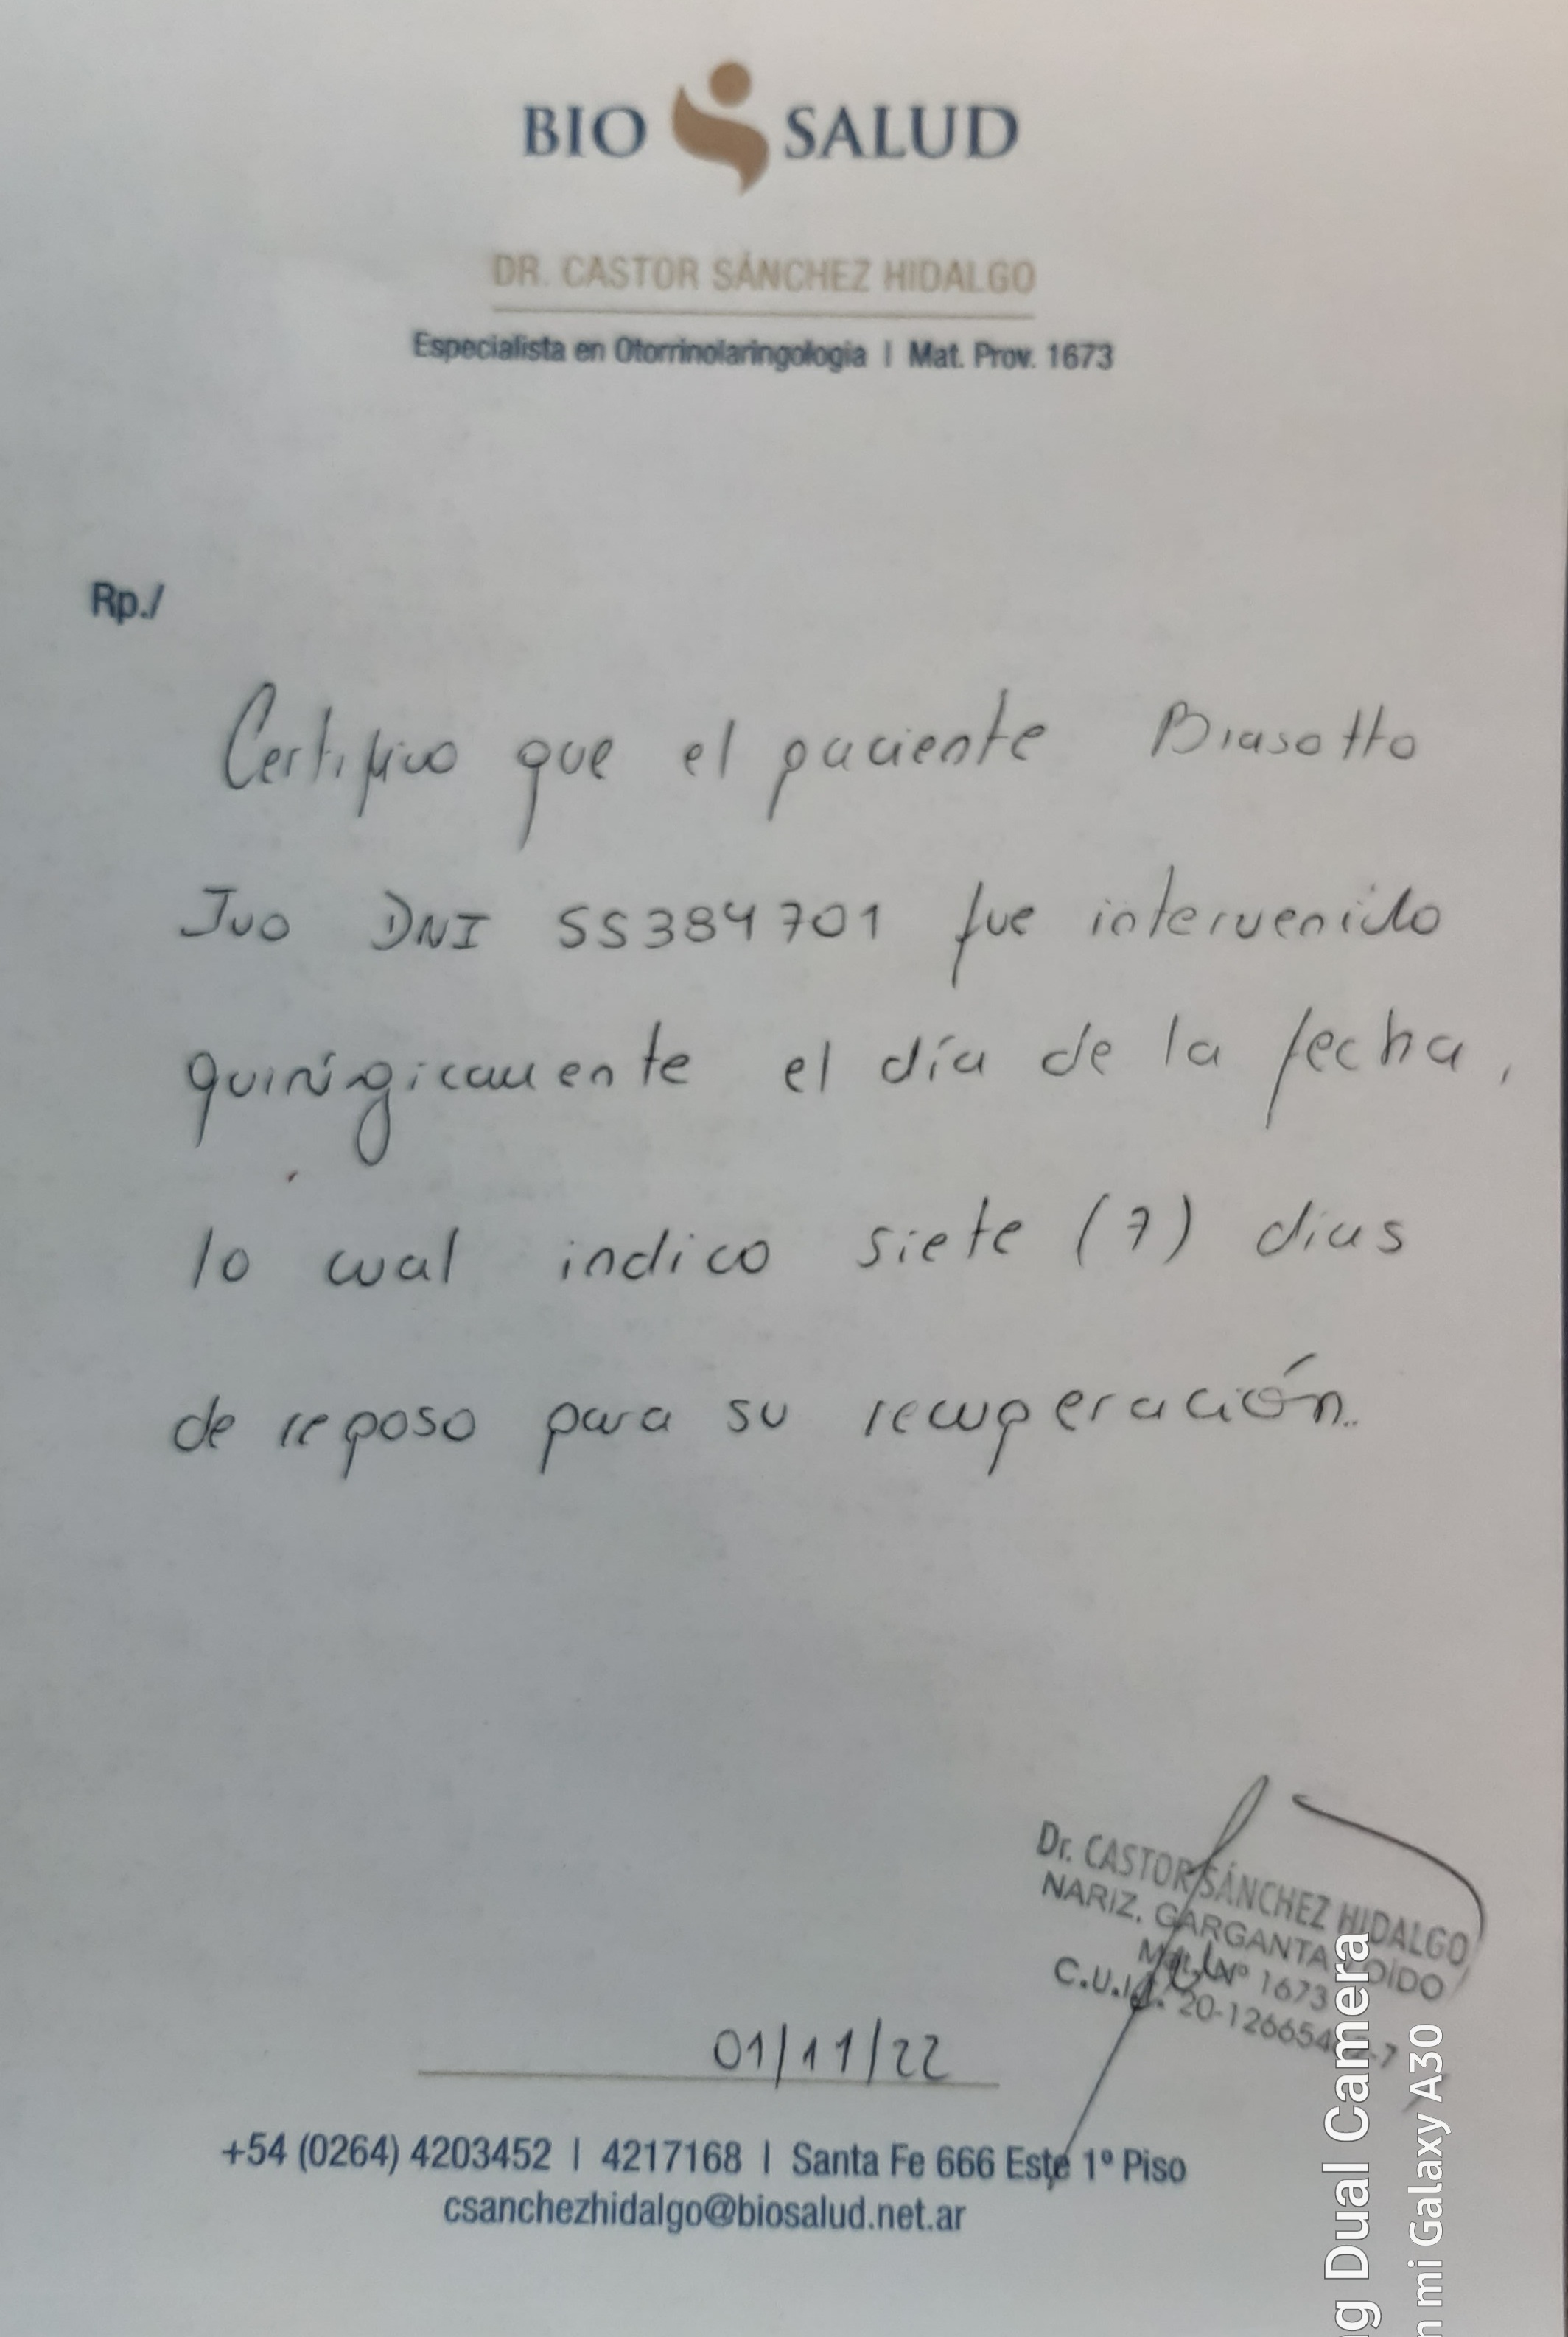 BIO SALUD
DR. CASTOR SÁNCHEZ HIDALGO
Especialista en Otorrinolaringologia | Mat. Prov. 1673
Rp./
Certifico que el paciente Biasotto
Ivo DNI 55384701 fue intervenido
quirúrgicamente el día de la fecha,
lo cual indico siete (7) dias
de reposo para su recuperación.
Dr. CASTOR SÁNCHEZ HIDALGO
NARIZ, GARGANTA OÍDO
Mat. Nº 1673
C.U.I.T.
01/11/22
+54 (0264) 4203452 | 4217168 | Santa Fe 666 Este 1º Piso
csanchezhidalgo@biosalud.net.ar
Dual Camera
mi Galaxy A30